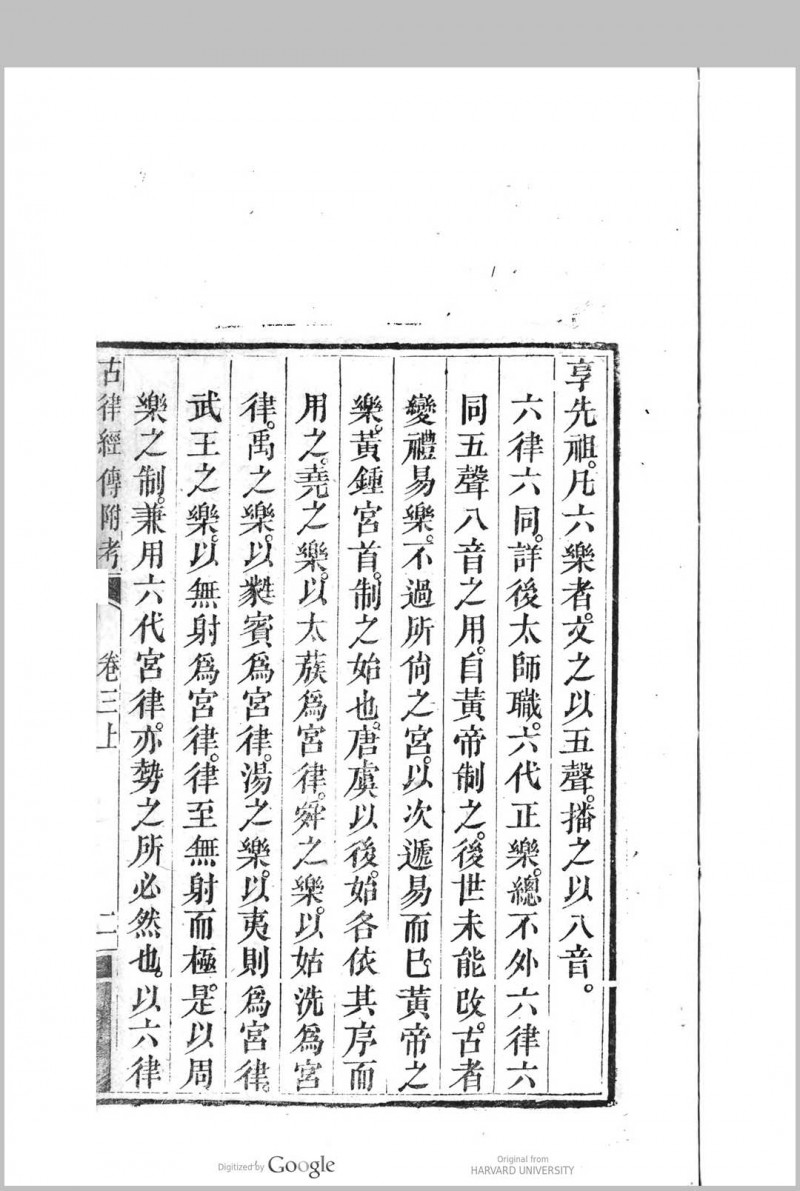 享先祖。凡六樂者。文之以五聲。播之以八音。
六律六同。詳後太師職。六代正樂。總不外六律六
同五聲八音之用。自黃帝制之。後世未能改。古者
變禮易樂。不過所尙之宮。以次遞易而已。黃帝之
樂。黃鍾宮首。制之始也。唐虞以後。始各依其序而
用之。堯之樂。以太蔟爲宮律。舜之樂。以姑洗爲宮
律。禹之樂。以蕤賓爲宮律。湯之樂。以夷則爲宮律。
武王之樂。以無射爲宮律。律至無射而極。是以周
樂之制。兼用六代宮律。亦勢之所必然也。以六律
古律經傳附考 卷三上 二
Digitized by Google
Original from
HARVARD UNIVERSITY